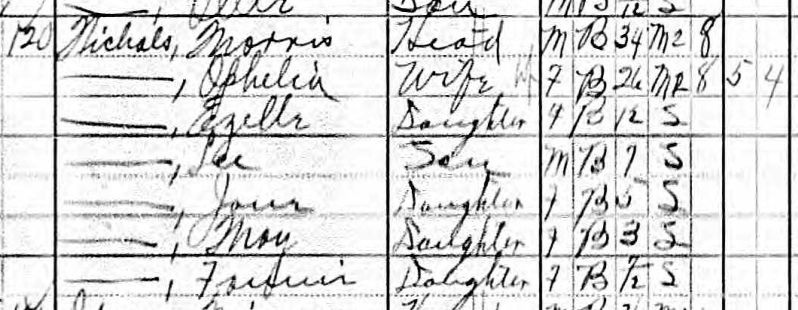 Son M B S
120 Nichols, Morris Head M B 34 M2 8
——, Ophelia Wife F B 26 M2 8 5 4
——, Ezelle Daughter F B 12 S
——, Lee Son M B 7 S
——, Daughter F B 5 S
——, May Daughter F B 3 S
——, Daughter F B S